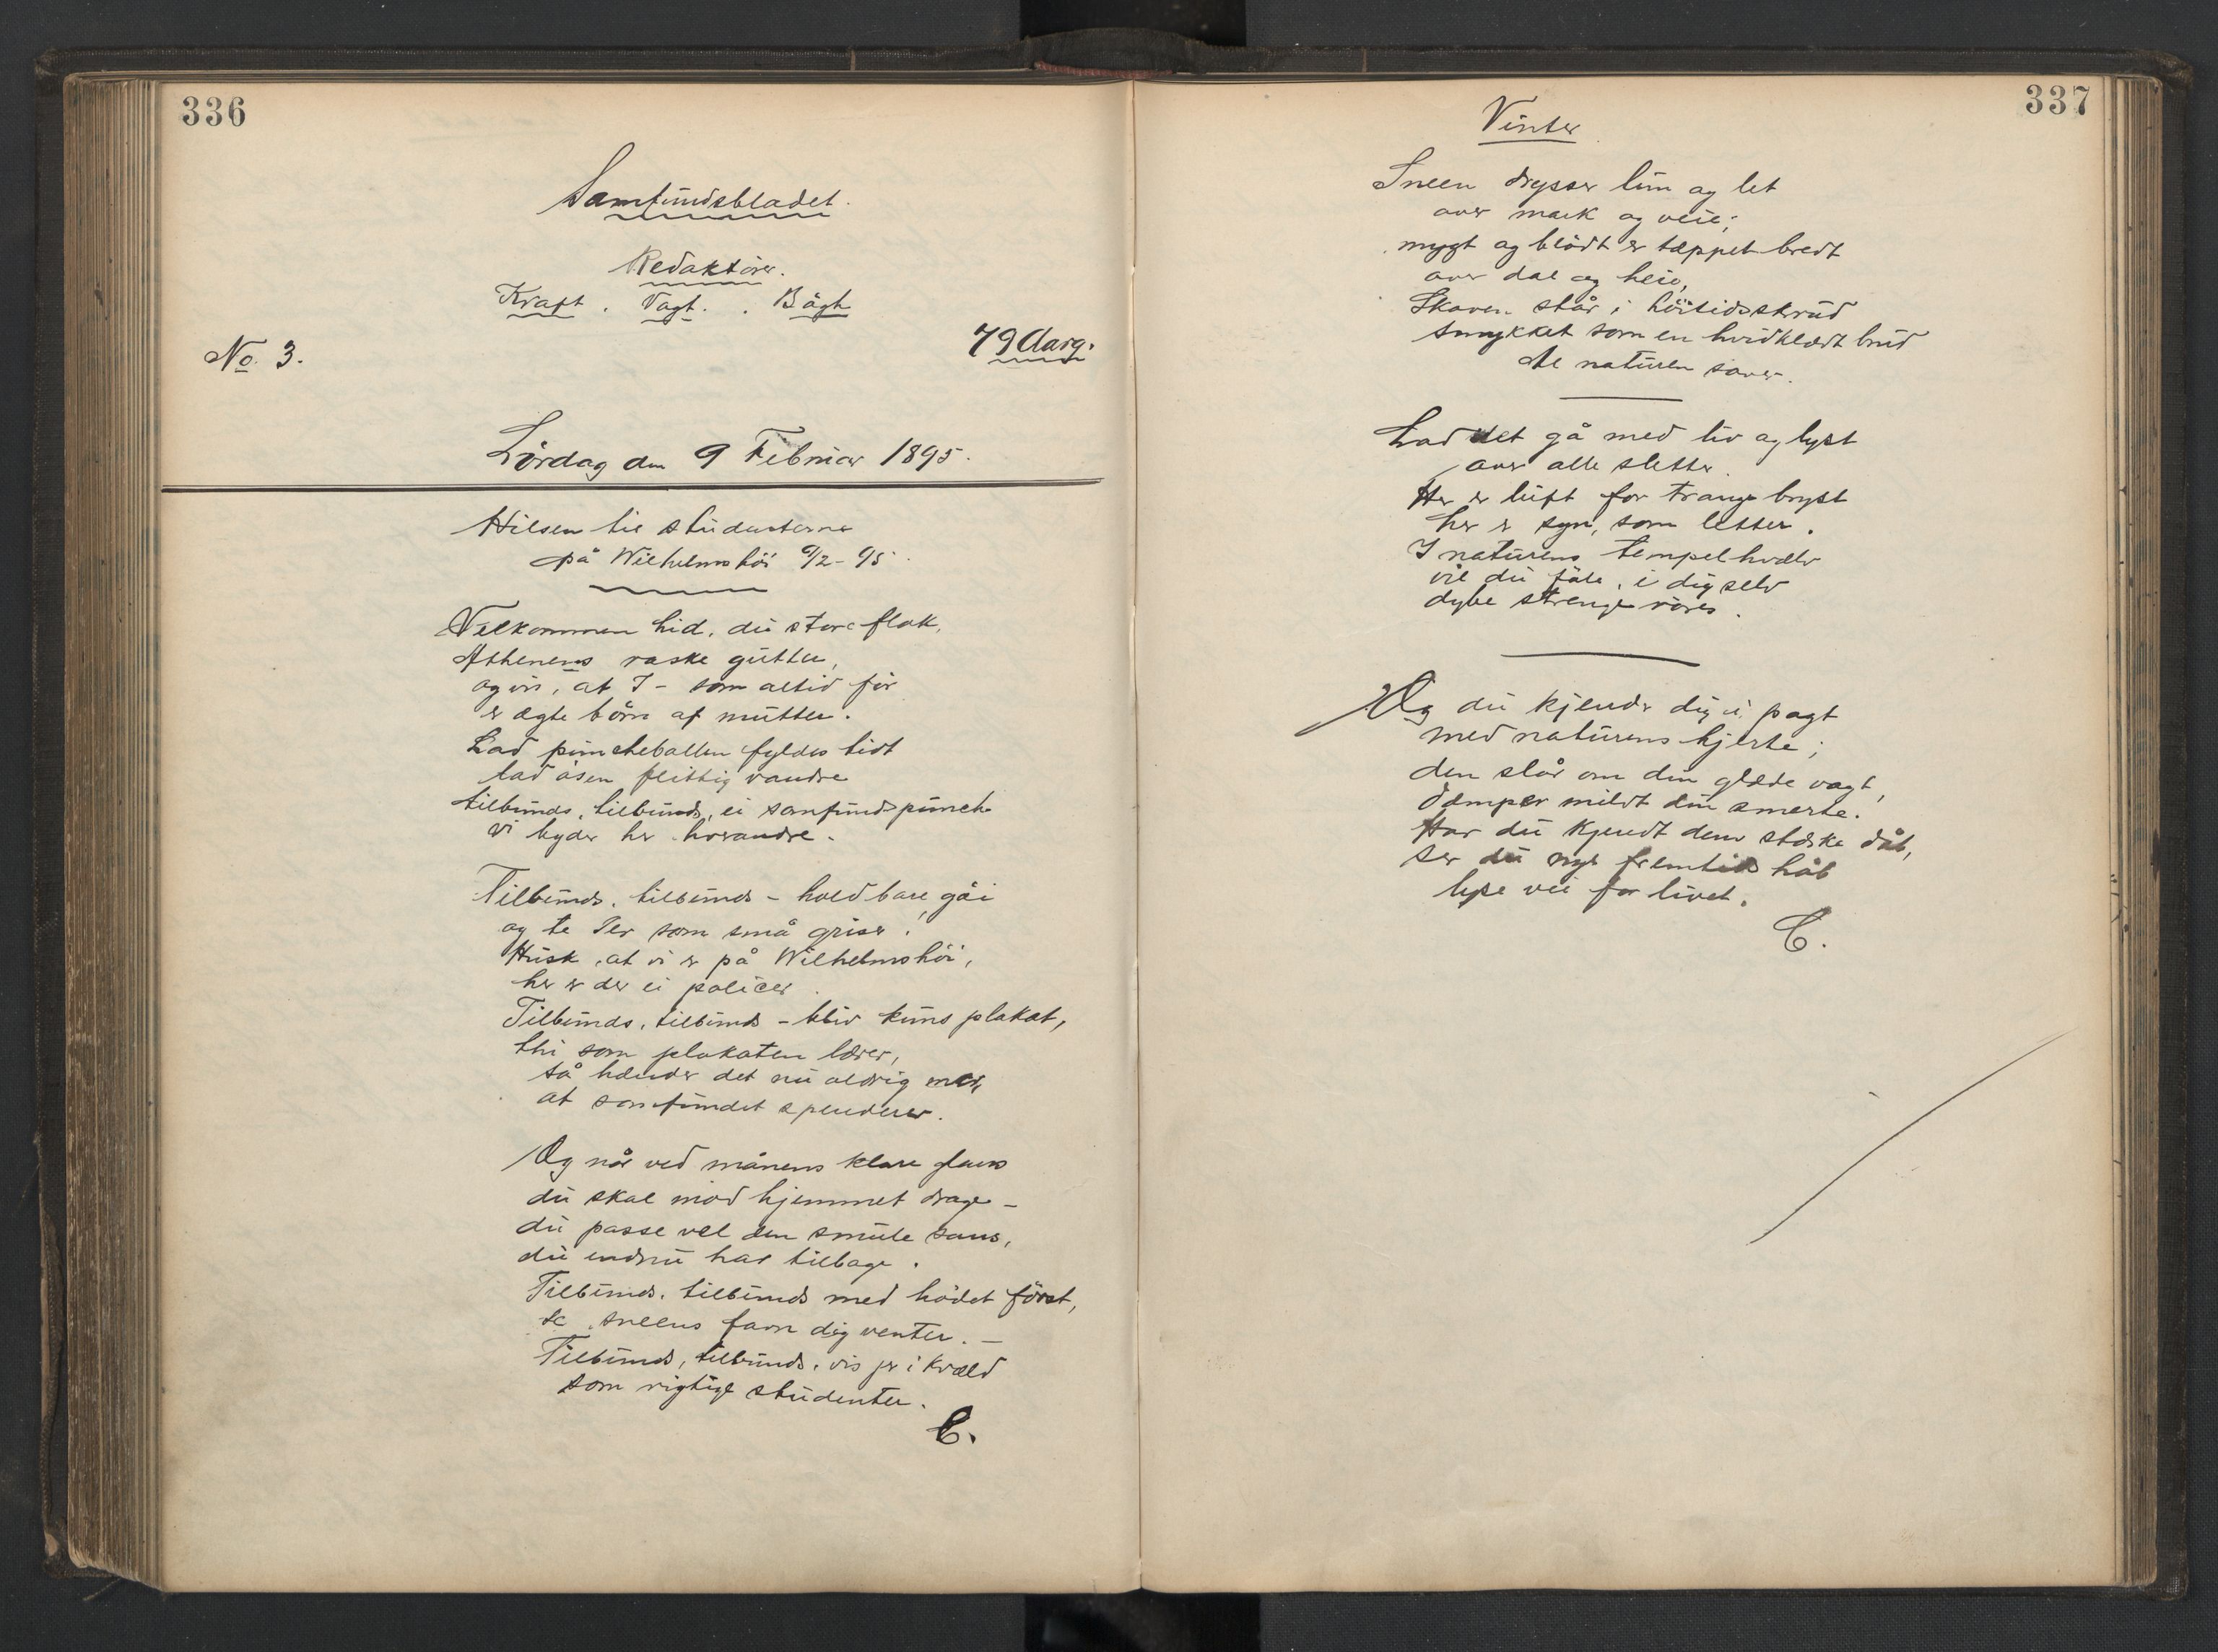 336
Samfundsbladet.
Redaktører.
Kraft. Vogt. Bågh
No. 3.
79 Aarg.
Lørdag den 9 Februar 1895.
Hilsen til studenterne
på Wilhelmshöi 9/2-95.
Velkommen hid, du store flok,
Athenens raske gutter,
og vis, at I – som altid før
er ægte børn af mutter.
Lad puncheballen fyldes tidt
lad øsen flittig vandre
tilbunds, tilbunds, ei samfundspunch
vi byder her hverandre.
Tilbunds, tilbunds – hold bare gåi
og te Jer som små griser!
Husk, at vi er på Wilhelmshöi,
her er der ei policer.
Tilbunds, tilbunds – bliv kuns plakat,
thi som plakaten lærer,
så hænder det nu aldrig mer,
at samfundet spenderer.
Og når ved månens klare glans
du skal mod hjemmet drage –
du passe vel den smule sans,
du endnu har tilbage.
Tilbunds, tilbunds med hødet først,
se sneens favn dig venter. –
Tilbunds, tilbunds, vis jer i kvæld
som rigtige studenter.
C.
337
Vinter
Sneen drysser lun og let
over mark og veie;
mygt og blødt er tæppet bredt
over dal og heie,
Skoven står i höitidsskrud
smykket som en hvidklædt brud
Al naturen sover.
Lad det gå med liv og lyst
over alle sletter.
Her er luft for trange bryst
her er syn, som letter.
I naturens tempelhvælv
vil du føle, i dig selv
dybe strenge røres.
Og du kjender dig i pagt
med naturens hjerte;
den slår om din glæde vagt,
dæmper mildt din smerte.
Har du kjendt den stærke dåb,
ser du nye fremtids håb
lyse vei for livet.
C.